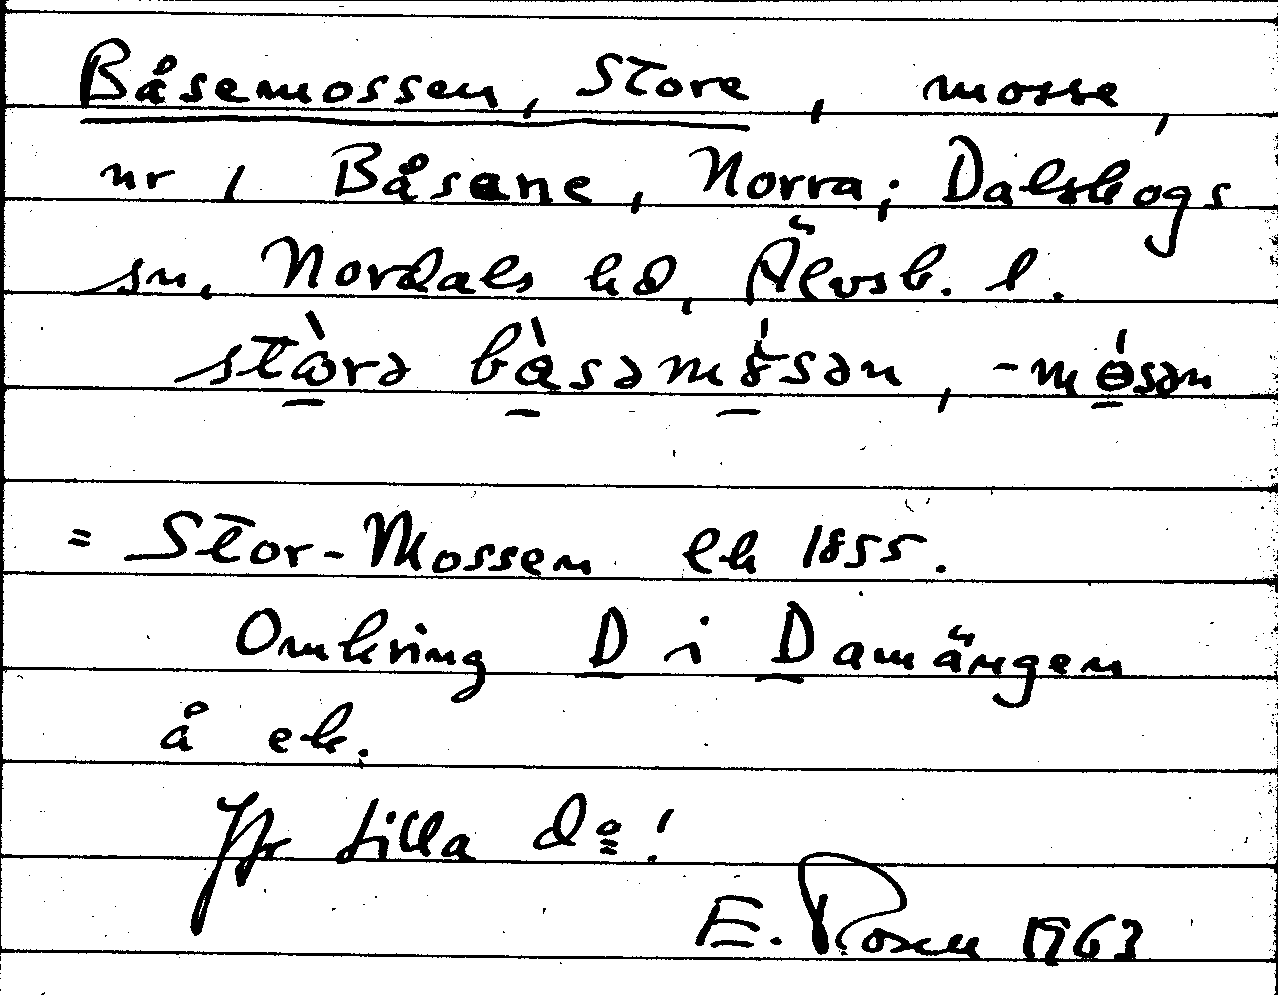 Båsemossen, Store, mosse,
nr 1 Båsane, Norra; Dalskogs
sn, Nordals hd, Älvsb. l.
-mösən
= Stor-Mossen ek 1855.
Omkring D i Damängen
å ek.
Jfr Lilla do!
E. Rosen 1963